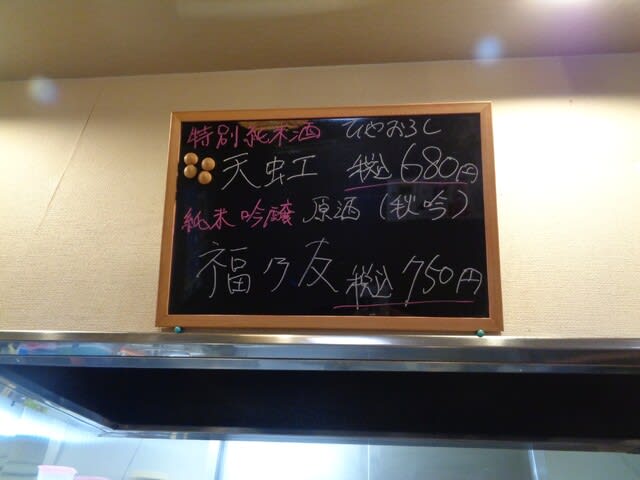 特別純米酒 ひやおろし
天虹 税込680円
純米吟醸 原酒(秋吟)
福乃友 税込750円